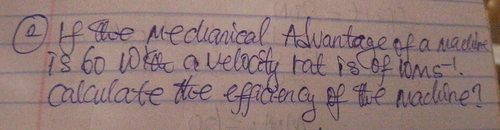 ② If the Mechanical Advantage of a machine
is 60 with a velocity rat is of 10ms⁻¹.
Calculate the efficiency of the machine?